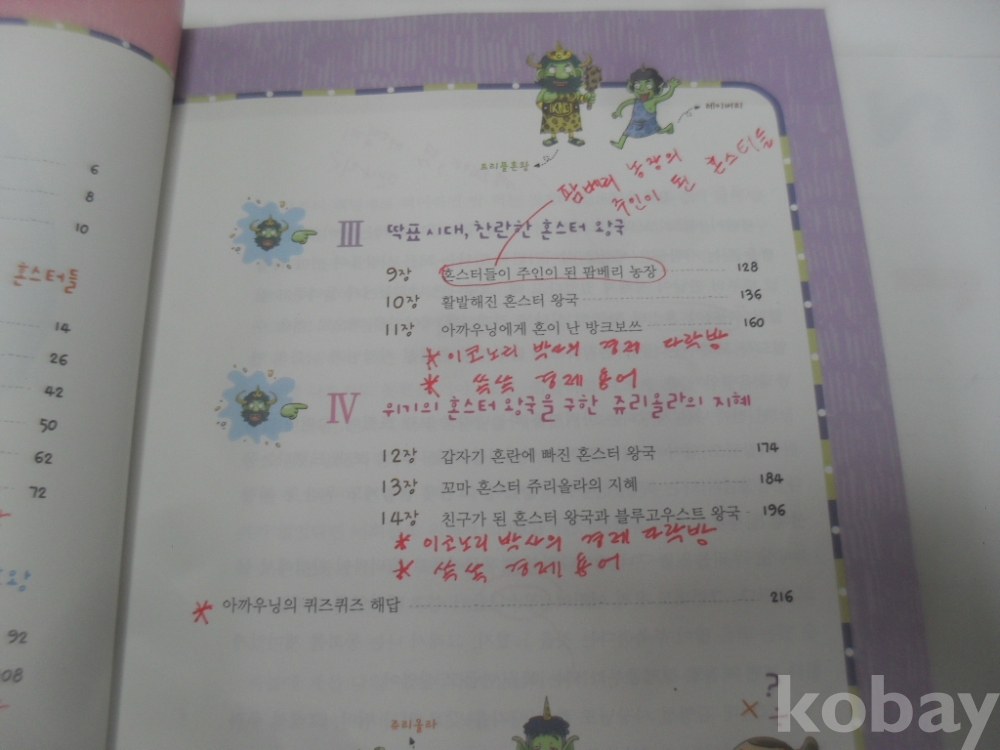 6
8
10
혼스터들
14
26
42
50
62
72
92
108
요리풀혼왕
팜베리 농장의
주인이 된 혼스터들
III 딱표시대, 찬란한 혼스터 왕국
9장 혼스터들이 주인이 된 팜베리 농장 128
10장 활발해진 혼스터 왕국 136
11장 아까우닝에게 혼이 난 방크보쓰 160
* 이코노리 박사의 경제 다락방
* 쏙쏙 경제 용어
IV 위기의 혼스터 왕국을 구한 쥬리울라의 지혜
12장 갑자기 혼란에 빠진 혼스터 왕국 174
13장 꼬마 혼스터 쥬리울라의 지혜 184
14장 친구가 된 혼스터 왕국과 블루고우스트 왕국 196
* 이코노리 박사의 경제 다락방
* 쏙쏙 경제 용어
* 아까우닝의 퀴즈퀴즈 해답 216
쥬리울라
?
×
kobay